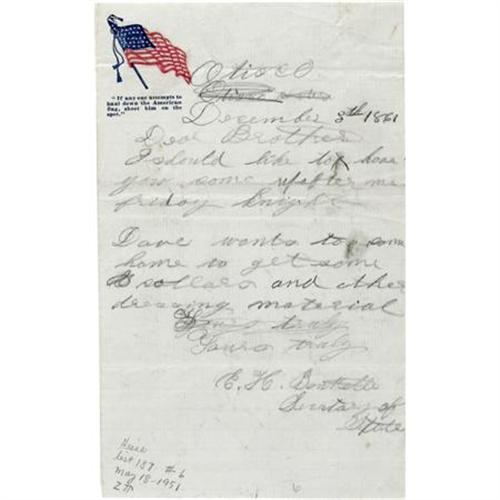 "If any one attempts to
haul down the American
flag, shoot him on the
spot."
Otisco
Otisco
December 8th 1861
Dear Brother
I should like to have
you come up after me
friday knight
Dave wants to come
home to get some
collars and other
dressing material
Yours truly
Yours truly
E. H.
Secretary of
State
lot 187 #6
May 18-1951